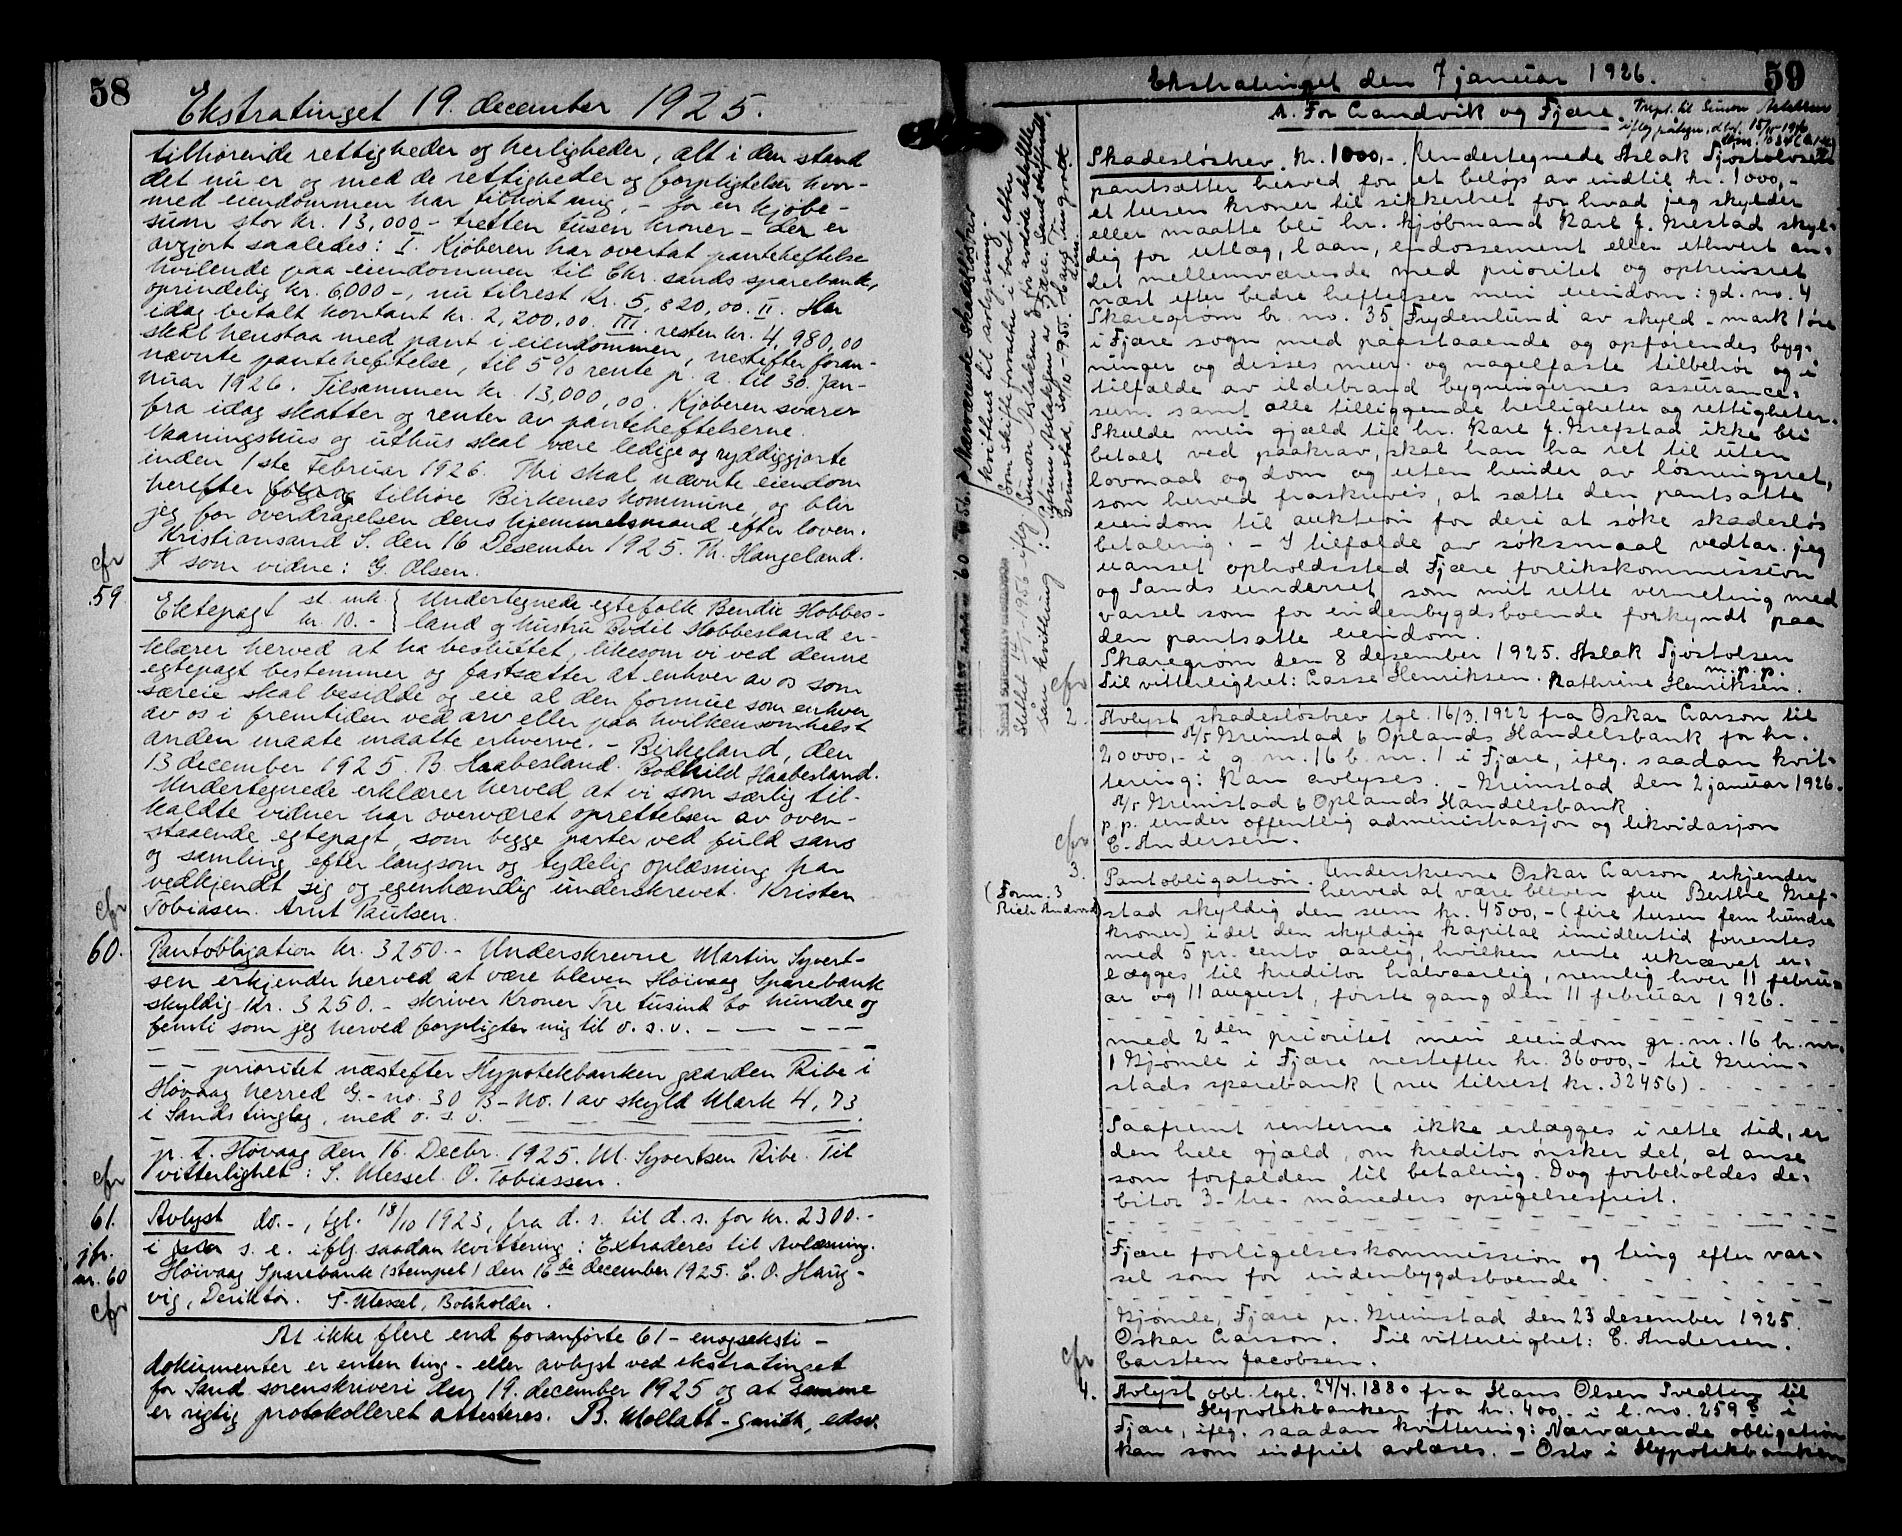 58
Ekstratinget 19. december 1925.
tilhørende rettigheder og herligheder, alt i den stand
det nu er og med de rettigheder og forpligtelser hvor-
med eiendommen har tilhørt mig, - for en kjøbe-
sum stor kr. 13,000 - tretten tusen kroner - der er
avgjort saaledes: I. Kjøberen har overtat panteheftelse
hvilende paa eiendommen til Chr. sands sparebank,
oprindelig kr. 6000-, nu tilrest kr. 5,820,00. II. Har
idag betalt kontant kr. 2,200,00. III. resten kr. 4,980,00
skal henstaa med pant i eiendommen, nestefter foran-
nævnte panteheftelse, til 5% rente p. a. til 30. jan-
uar 1926. Tilsammen kr. 13,000,00. Kjøberen svarer
fra idag skatter og renter av panteheftelserne.
Vaaningshus og uthus skal være ledige og ryddiggjorte
inden 1ste Februar 1926. Thi skal nævnte eiendom
herefter følge og tilhøre Birkenes kommune, og blir
jeg for overdragelsen dens hjemmelsmand efter loven.
Kristiansand S. den 16 Desember 1925. Th. Haugeland.
som vidne: G. Olsen.
cfr
59
Ektepagt st. mk. kr. 10.- Undertegnede egtefolk Bendic Hobbes-
land og hustru Bodil Hobbesland er-
klærer herved at ha besluttet, likesom vi ved denne
egtepagt bestemmer og fastsætter at enhver av os som
særeie skal besidde og eie al den formue som enhver
av os i fremtiden ved arv eller paa hvilkensomhelst
anden maate maatte erhverve. - Birkeland, den
13 december 1925. B. Haabesland. Bodhild Haabesland.
Undertegnede erklærer herved at vi som særlig til-
kaldte vidner har overværet oprettelsen av oven-
staaende egtepagt, som begge parter ved fuld sans
og samling efter langsom og tydelig oplæsning har
vedkjendt sig og egenhændig underskrevet. Kristen
Tobiasen. Arnt Paulsen.
cfr
60. Pantobligation kr. 3250.- Underskrevne Martin Syvert-
sen erkjender herved at være bleven Høivaag Sparebank
skyldig kr. 3250.- skriver Kroner Tre tusind to hundre og
femti som jeg herved forpligter mig til o. s. v. - - - - -
- - prioritet næstefter Hypotekbanken gaarden Ribe i
Høvaag herred G.- no. 30 B- No. 1 av skyld Mark 4,73
i Sands tinglag, med o. s. v. - - - -
p. t. Høvaag den 16. Decbr. 1925. M. Syvertsen Ribe. Til
vitterlighet: S. Messel. O. Tobiassen.
cfr
61. Avlyst do.-, tgl. 18/10 1923, fra d. s. til d. s. for kr. 2300.-
jfr. nr. 60
i s. e. iflg. saadan kvittering: Extraderes til Avlæsning.
Høivaag Sparebank (stempel) den 16de december 1925. C. O. Haug-
vig, Deriktør. S. Messel, Bokholder.
cfr
At ikke flere end foranførte 61 - enogseksti -
dokumenter er enten ting- eller avlyst ved ekstratinget
for Sand sorenskriveri den 19. december 1925 og at samme
er rigtig protokolleret attesteres. B. Mollatt-Smith, edsv.
59
Ekstratinget den 7 januar 1926.
A. For Landvik og Fjære.
Skadesløsbrev. kr. 1000,-. Undertegnede Aslak Tjostolvsen
pantsætter herved for et beløp av indtil kr. 1000,-
et tusen kroner til sikkerhet for hvad jeg skylder
eller maatte bli hr. kjøbmand Karl J. Krefstad skyl-
dig for utlæg, laan, endossement eller ethvert an-
det mellemværende med prioritet og optrinsret
næst efter bedre heftelser min eiendom: gd. no. 4
Skaregrøm br. no. 35 Frydenlund av skyld - mark 1 øre
i Fjære sogn med paastaaende og opførendes byg-
ninger og disses mur- og nagelfaste tilbehør og i
tilfælde av ildebrand bygningernes assurance-
sum samt alle tilliggende herligheter og rettigheter.
Skulde min gjæld til hr. Karl J. Krefstad ikke bli
betalt ved paakrav, skal han ha ret til uten
lovmaal og dom og uten hinder av løsningsret,
som herved fraskrives, at sætte den pantsatte
eiendom til auktion for deri at søke skadesløs
betaling. - I tilfælde av søksmaal vedtar jeg
uanset opholdssted Fjære forlikskommission
og Sands underret som mit rette verneting med
varsel som for indenbygdsboende forkyndt paa
den pantsatte eiendom.
Skaregrøm den 8 desember 1925. Aslak Tjostolsen
m. p. p.
Til vitterlighet: Lasse Henriksen. Kathrine Henriksen.
cfr
2. Avlyst skadesløsbrev tgl. 16/3. 1922 fra Oskar Larson til
A/S Grimstad & Oplands Handelsbank for kr.
20000,- i g. nr. 16 b. nr. 1 i Fjære, iflg. saadan kvit-
tering: Kan avlyses. - Grimstad den 2 januar 1926.
A/S Grimstad & Oplands Handelsbank
p. p. under offentlig administrasjon og likvidasjon
E. Andersen.
cfr
3. Pantobligation. Underskrevne Oskar Larson erkjender
(Form. 3
herved at være bleven fru Berthe Kref-
stad skyldig den sum kr. 4500,- (fire tusen fem hundre
kroner) idet den skyldige kapital imidlertid forrentes
med 5 pr. cento aarlig, hvilken rente ukrævet er-
lægges til kreditor halvaarlig, nemlig hver 11 febru-
ar og 11 august, første gang den 11 februar 1926.
med 2den prioritet min eiendom gr. nr. 16 br. nr.
1 Gjømle i Fjære nestefter kr. 36000,- til Grim-
stads sparebank (nu tilrest kr. 32456) - - - - -
Saafremt renterne ikke erlægges i rette tid, er
den hele gjæld, om kreditor ønsker det, at anse
som forfalden til betaling. Dog forbeholdes de-
bitor 3- tre- måneders opsigelsesfrist.
Fjære forligelseskommission og ting efter var-
sel som for indenbygdsboende - - - - -
Gjømle, Fjære pr. Grimstad den 23 desember 1925.
Oskar Larson. Til vitterlighet: E. Andersen.
Carsten Jacobsen.
cfr
4. Avlyst obl. tgl. 24/4. 1880 fra Hans Olsen Svedtin til
Hypotekbanken for kr. 400,- i l. no. 259 b i
Fjære, iflg. saadan kvittering: Nærværende obligation
kan som indfriet avlæses. - Oslo i Hypotekbanken